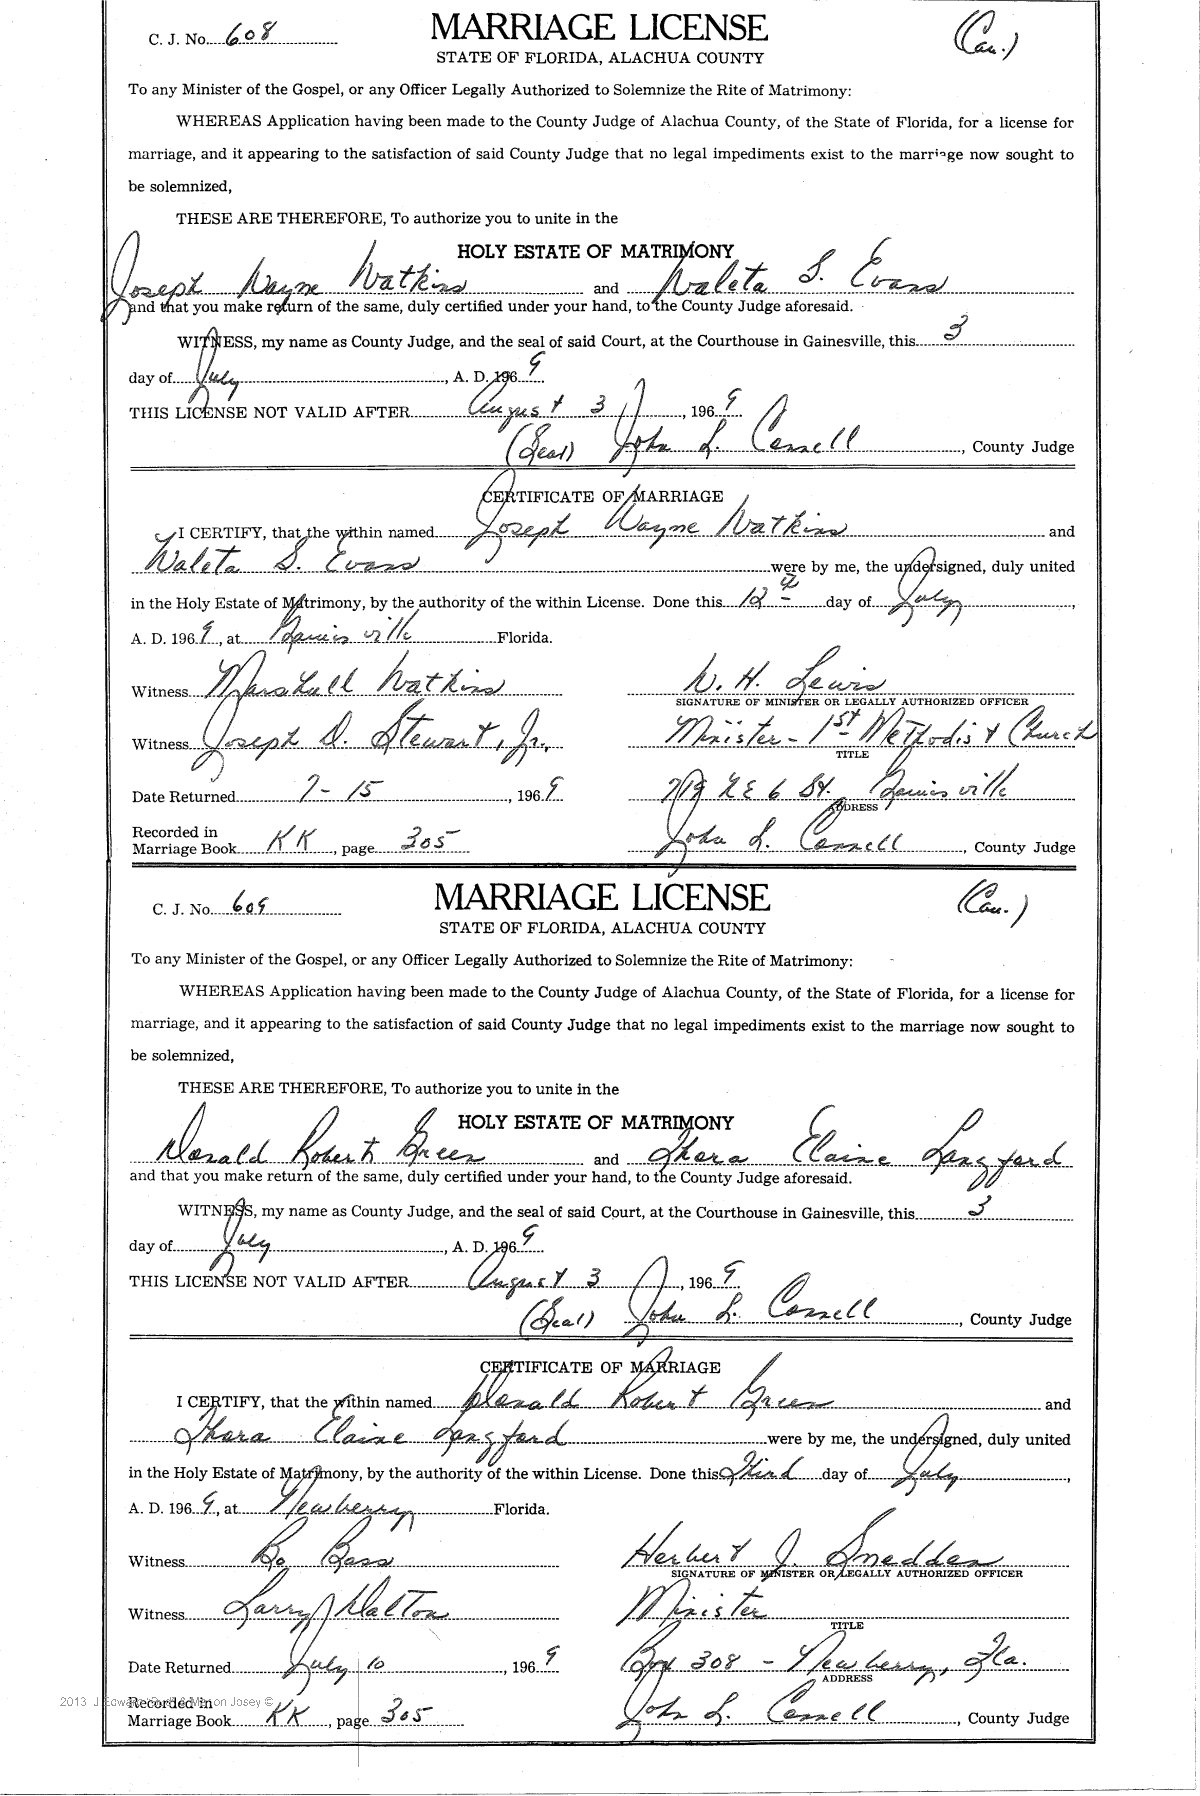 C. J. No. 608
MARRIAGE LICENSE
(Cau.)
STATE OF FLORIDA, ALACHUA COUNTY
To any Minister of the Gospel, or any Officer Legally Authorized to Solemnize the Rite of Matrimony:
WHEREAS Application having been made to the County Judge of Alachua County, of the State of Florida, for a license for
marriage, and it appearing to the satisfaction of said County Judge that no legal impediments exist to the marriage now sought to
be solemnized,
THESE ARE THEREFORE, To authorize you to unite in the
HOLY ESTATE OF MATRIMONY
Joseph Wayne Watkins and Waleta S. Evans
and that you make return of the same, duly certified under your hand, to the County Judge aforesaid.
WITNESS, my name as County Judge, and the seal of said Court, at the Courthouse in Gainesville, this 3
day of July, A. D. 1969
THIS LICENSE NOT VALID AFTER August 3, 1969
(Seal) John L. Connell, County Judge
CERTIFICATE OF MARRIAGE
I CERTIFY, that the within named Joseph Wayne Watkins and
Waleta S. Evans were by me, the undersigned, duly united
in the Holy Estate of Matrimony, by the authority of the within License. Done this 12th day of July,
A. D. 1969, at Gainesville Florida.
Witness Marshall Watkins W. H. Lewis
SIGNATURE OF MINISTER OR LEGALLY AUTHORIZED OFFICER
Witness Joseph D. Stewart, Jr., Minister - 1st Methodist Church
TITLE
Date Returned 7-15, 1969 719 NE 6 St. Gainesville
ADDRESS
Recorded in
Marriage Book KK, page 305 John L. Connell, County Judge
C. J. No. 609
MARRIAGE LICENSE
(Cau.)
STATE OF FLORIDA, ALACHUA COUNTY
To any Minister of the Gospel, or any Officer Legally Authorized to Solemnize the Rite of Matrimony:
WHEREAS Application having been made to the County Judge of Alachua County, of the State of Florida, for a license for
marriage, and it appearing to the satisfaction of said County Judge that no legal impediments exist to the marriage now sought to
be solemnized,
THESE ARE THEREFORE, To authorize you to unite in the
HOLY ESTATE OF MATRIMONY
Donald Robert Green and Thora Elaine Langford
and that you make return of the same, duly certified under your hand, to the County Judge aforesaid.
WITNESS, my name as County Judge, and the seal of said Court, at the Courthouse in Gainesville, this 3
day of July, A. D. 1969
THIS LICENSE NOT VALID AFTER August 3, 1969
(Seal) John L. Connell, County Judge
CERTIFICATE OF MARRIAGE
I CERTIFY, that the within named Donald Robert Green and
Thora Elaine Langford were by me, the undersigned, duly united
in the Holy Estate of Matrimony, by the authority of the within License. Done this third day of July,
A. D. 1969, at Newberry Florida.
Witness Bo Bass Herbert J. Snedden
SIGNATURE OF MINISTER OR LEGALLY AUTHORIZED OFFICER
Witness Larry Dalton Minister
TITLE
Date Returned July 10, 1969 Box 308 - Newberry, Fla.
ADDRESS
Recorded in
Marriage Book KK, page 305 John L. Connell, County Judge
2013 J Edward Josey ©